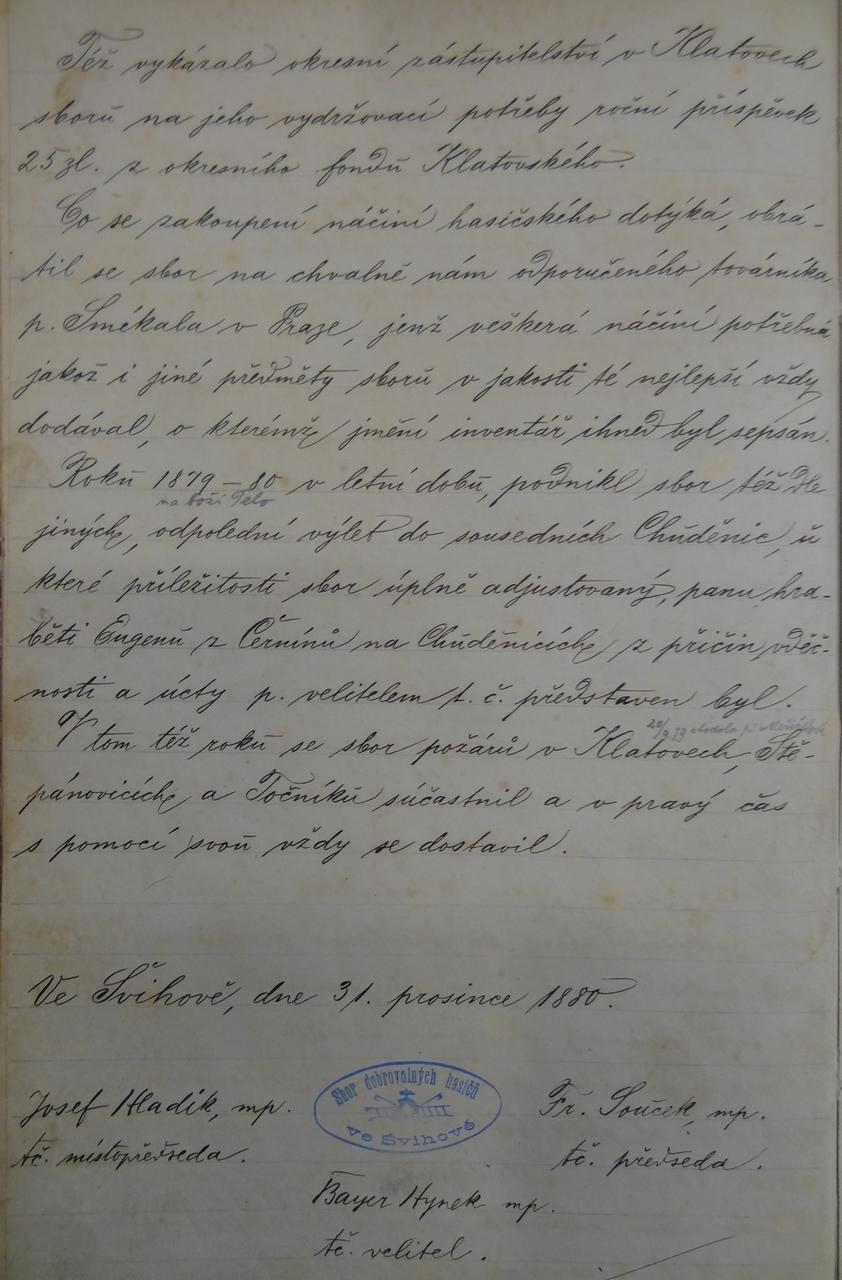 Též vykázalo okresní zástupitelství v Klatovech
sboru na jeho vydržovací potřeby roční příspěvek
25 zl. z okresního fondu Klatovského.
Co se zakoupení náčiní hasičského dotýká, obrá-
til se sbor na chvalně nám odporučeného továrníka
p. Smékala v Praze, jenž veškerá náčiní potřebná
jakož i jiné předměty sboru v jakosti té nejlepší vždy
dodával, o kterémž jmění inventář ihned byl sepsán.
Roku 1879 – 80 v letní dobu, podnikl sbor též dle
na boží Tělo
jiných, odpolední výlet do sousedních Chuděnic, u
které příležitosti sbor úplně adjustovaný, panu hra-
běti Eugenu z Černínů na Chuděnicích z příčin vděč-
nosti a úcty p. velitelem t. č. představen byl.
20/9 79 stodola p.
V tom též roku se sbor požárů v Klatovech, Ště-
pánovicích a Točníku súčastnil a v pravý čas
s pomocí svou vždy se dostavil.
Ve Švihově, dne 31. prosince 1880.
Sbor dobrovolných hasičů
ve Švihově
Josef Hladík, mp.
tč. místopředseda.
Fr. Souček, mp.
tč. předseda.
Bayer Hynek mp.
tč. velitel.